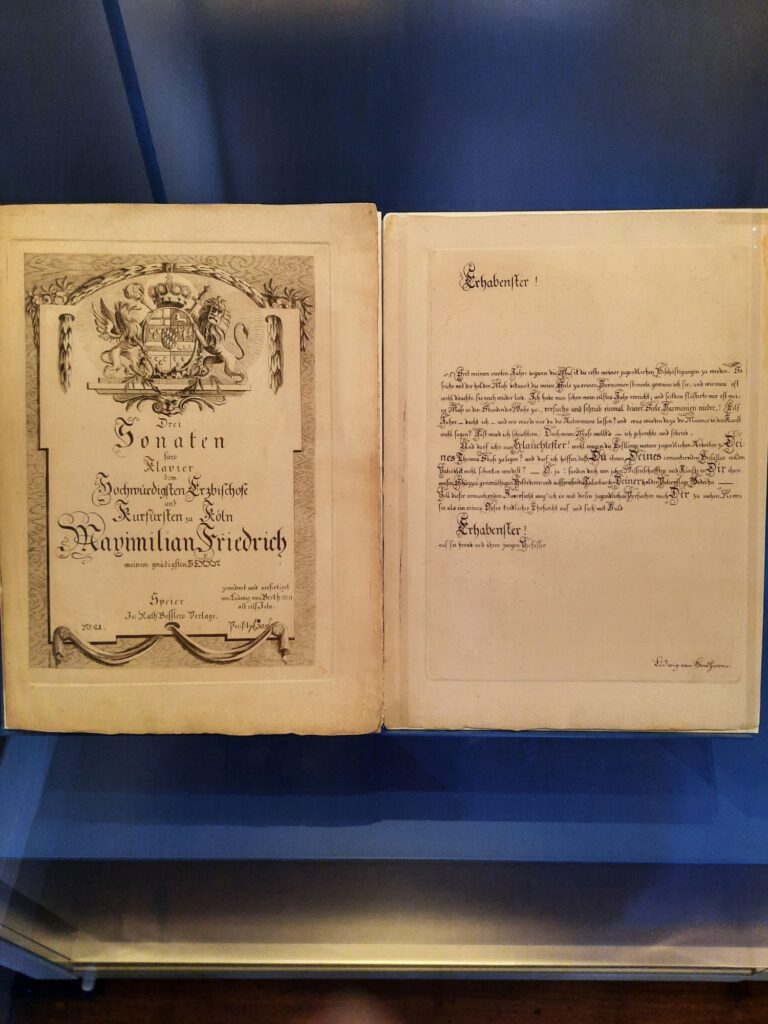 Drei
Sonaten
fürs
Klavier
dem
Hochwürdigsten Erzbischofe
und
Kurfürsten zu Köln
Maximilian Friedrich
meinem gnädigsten HERRN
gewidmet und verfertiget
von Ludwig van Beethoven
alt eilf Jahr.
Speier
In Rath Bosslers Verlage.
No. 21.
Erhabenster !
Seit meinem vierten Jahre begann die Musik die erste meiner jugendlichen Beschäftigungen zu werden. So
frühe mit der holden Muse bekannt, die meine Seele zu reinen Harmonien stimmte, gewann ich sie, und wie mirs oft
wohl däuchte, sie mich wieder lieb. Ich habe nun schon mein eilftes Jahr erreicht; und seitdem flüsterte mir oft mei-
ne Muse in den Stunden der Weihe zu: versuchs und schreib einmal deiner Seele Harmonien nieder! Eilf
Jahre — dacht ich — und wie würde mir da die Autormiene lassen? und was würden dazu die Männer in der Kunst
wohl sagen? Fast ward ich schüchtern. Doch meine Muse wollt's — ich gehorchte, und schrieb.
Und darf ich's nun Erlauchtester! wohl wagen, die Erstlinge meiner jugendlichen Arbeiten zu Dei-
nes Thrones Stufen zu legen? und darf ich hoffen, daß Du ihnen Deines ermunternden Beifalles milden
Vaterblick wohl schenken werdest? — O, ja! fanden doch von jeher Wissenschaften und Künste in Dir ihren
weisen Schützer, grosmüthigen Beförderer, und aufspriessendes Talent unter Deiner holden Vaterpflege Gedeihn —
Voll dieser ermunternden Zuversicht wag' ich es mit diesen jugendlichen Versuchen mich Dir zu nahen. Nimm
sie als ein reines Opfer kindlicher Ehrfurcht auf und sieh mit Huld
Erhabenster !
auf sie herab und ihren jungen Verfasser
Ludwig van Beethoven